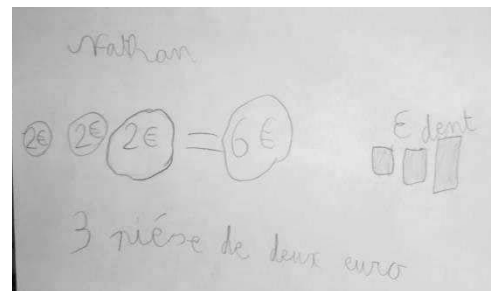 Nathan
2€ 2€ 2€ = 6€
€ dent
3 piése de deux euro